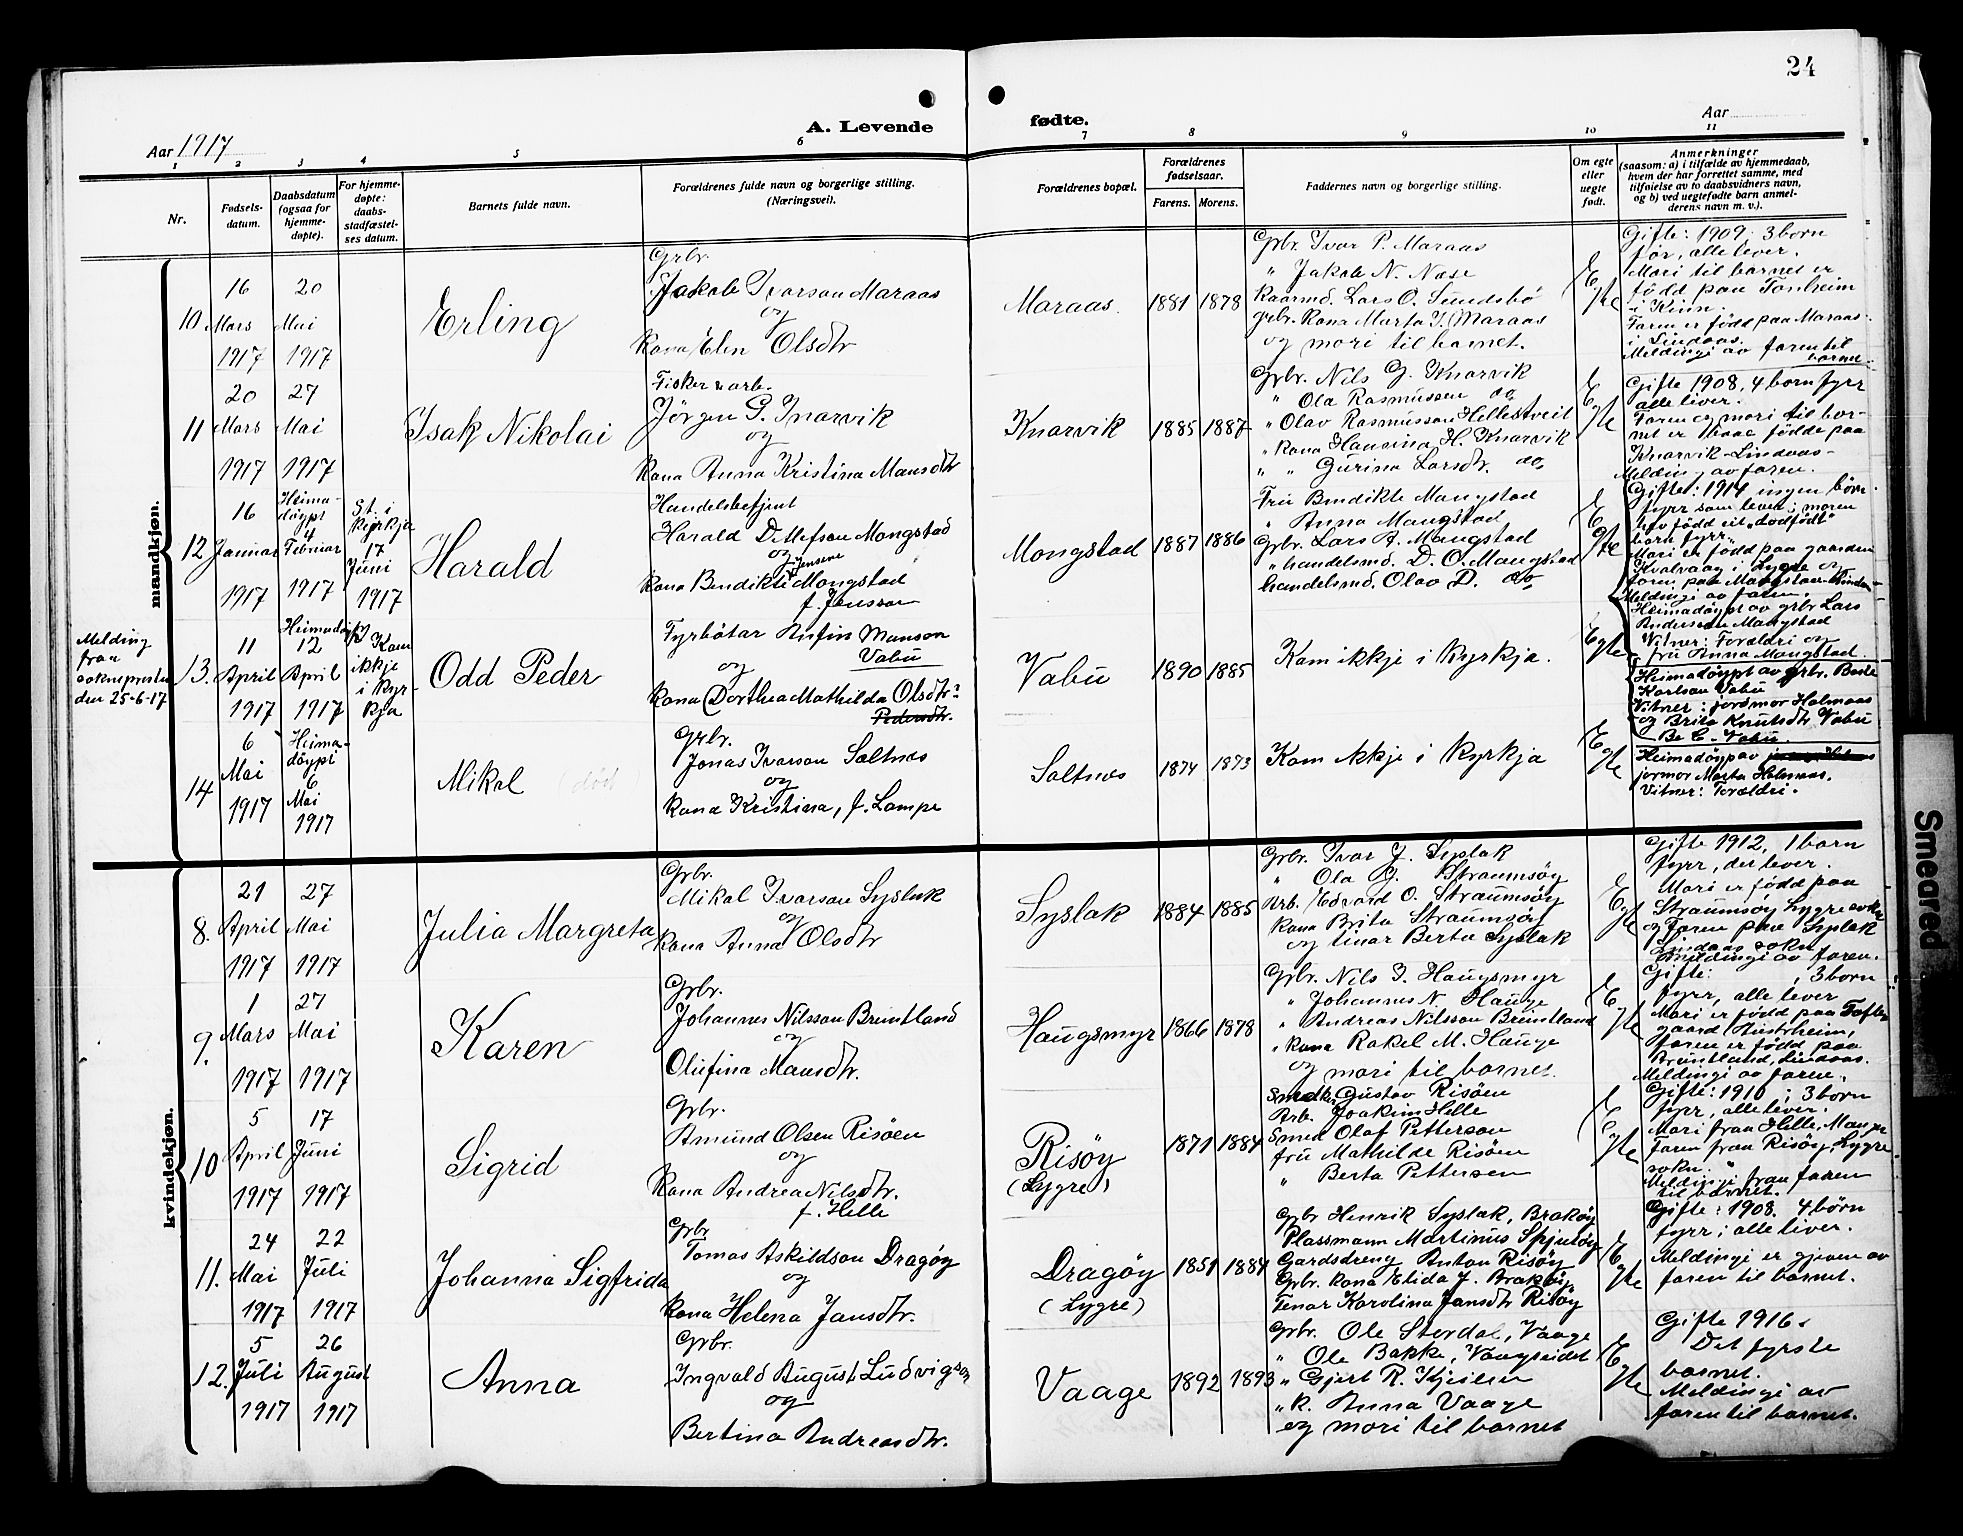 24
A. Levende fødte.
Aar 1917
Aar
1 2 3 4 5 6 7 8 9 10 11
Nr.
Fødsels-
datum.
Daabsdatum
(ogsaa for
hjemme-
døpte).
For hjemme-
døpte:
daabs-
stadfæstel-
ses datum.
Barnets fulde navn.
Forældrenes fulde navn og borgerlige stilling.
(Næringsvei).
Forældrenes bopæl.
Forældrenes
fødselsaar.
Farens. Morens.
Faddernes navn og borgerlige stilling.
Om egte
eller
uegte
født.
Anmerkninger
(saasom: a) i tilfælde av hjemmedaab,
hvem der har forrettet samme, med
tilføielse av to daabsvidners navn,
og b) ved uegtefødte barn anmel-
derens navn m. v.).
mandkjøn.
10
16
Mars
1917
20
Mai
1917
Erling
Grbr.
Jakob Ivarson Maraas
og
Kona Elen Olsdtr
Maraas.
1881 1878
Grbr. Ivar P. Maraas
" Jakob N. Nese
Kaarmd. Lars O. Sundsbö
grbr. Kona Marta J. Maraas
og mori til barnet.
Egte
Gifte: 1909: 3 born
för, alle lever.
Mori til barnet er
född paa Tonheim
i Kinn.
Faren er född paa Maraas
i Lindaas.
Meldingi av faren til
barnet.
11
20
Mars
1917
27
Mai
1917
Isak Nikolai
Fisker & arb.
Jörgen G. Knarvik
og
Kona Anna Kristina Mansdtr
Knarvik
1885 1887
Grbr. Nils G. Knarvik
" Ola Rasmussen do
" Olav Rasmusson Hellestveit
" Kona Hansina H. Knarvik
" " Gurina Larsdtr. do
Egte
Gifte 1908, 4 born fyrr
alle liver.
Faren og mori til bor-
net er baae födde paa
Knarvik-Lindaas-
Melding av faren.
12
16
Januar
1917
Heima-
döypt
4
Februar
1917
St. i
kyrkja
17
Juni
1917
Harald
Handelsbetjent
Harald D. Mongstad
og
Jensine
Kona Bendikte Mongstad
f. Jensson
Mongstad
1887 1886
Fru Bendikte Mangstad
" Anna Mangstad
Grbr. Lars A. Mangstad
" handelsmd. D. O. Mangstad
handelsmd. Olav D. do
Egte
Gifte: 1914 ingen börn
fyrr som lever; moren
hev född eit "dödfödt"
barn fyrr"
Mori er född paa gaarden
Kvalvaag i Lygre og
faren paa Mangstad-Lindaas-
Meldingi av faren.
Heimadöypt av grbr Lars
Anderssen Mangstad
Vitner: Forældri og
fru Anna Mangstad.
Melding
fraa
soknepresten
den 25-6-17
13.
11
April
1917
Heimadöypt
12
April
1917
Kom
ikkje
i kyr-
kja
Odd Peder
Fyrbötar Anfin Manson
Vabu
og
Kona Dorthea Mathilda Olsdtr?
Pedersdtr.
Vabu
1890 1885
Kom ikkje i kyrkja.
Egte
Heimadöypt av grbr. Berte
Karlson Vabu
Vitner: jordmor Holmaas
og Brita Knutsdtr Vabu
Be C. Vabu.
14
6
Mai
1917
Heima-
döypt
6
Mai
1917
Mikal (död)
Grbr.
Jonas Ivarson Saltnes
og
Kona Kristina, f. Lampe
Saltnes
1874 1873
Kom ikkje i kyrkja
Egte
Heimadöyp av
jormor Marta Holmaas.
Vitner: Forældri.
kvindekjøn.
8.
21
April
1917
27
Mai
1917
Julia Margreta
Grbr.
Mikal Ivarson Syslak
og
Kona Anna Olsdtr
Syslak
1884 1885
Grbr. Ivar J. Syslak
" Ola J. Straumsöy
Arb. Edvard O. Straumsöy
Kona Brita Straumsöy
og tinar Berta Syslak
Egte
Gifte 1912, 1 born
fyrr, det lever.
Mori er född paa
Straumsöy Lygre sokn
og Faren paa Syslak
Lindaas sokn
Meldingi av faren.
9.
1
Mars
1917
27
Mai
1917
Karen
Grbr.
Johannes Nilsson Breintland
og
Olufina Mansdtr.
Haugsmyr
1866 1878
Grbr. Nils J. Haugsmyr
" Johannes N. Hauge
" Andreas Nilsson Breintland
" kona Rakel M. Hauge
og mori til barnet.
Egte
Gifte: , 3 born
fyrr, alle lever
Mori er född paa Tofte-
gaard Austrheim,
faren er född paa
Breintland, Lindaas.
Meldingi av faren.
10
5
April
1917
17
Juni
1917
Sigrid
Grbr.
Amund Olsen Risöen
og
Kona Andrea Nilsdtr.
f. Helle
Risöy
(Lygre)
1871 1884
Snedker Gustav Risöen
Arb. Joakim Helle
Smed Olaf Petterson
fru Mathilde Risöen
" Berta Pettersen
Egte
Gifte: 1910; 3 born
fyrr, alle lever.
Mori fraa Helle, Manger
Faren fraa Risöy, Lygre
sokn.
Meldingi fraa faren
til barnet.
11.
24
Mai
1917
22
Juli
1917
Johanna Sigfrida
Grbr
Tomas Askildson Dragöy
og
Kona Helena Jansdtr.
Dragöy
(Lygre)
1851 1884
Grbr Henrik Syslak, Braköy
Plassmann Martinus Spjutöy
Gardsdreng Anton Risöy
Grbr. kona Elida J. Braköy
Tenar Karolina Jansdtr Risöy
Egte
Gifte: 1908. 4 börn
fyrr; alle liver.
Meldingi er gjeven av
faren til barnet.
12.
5
Juli
1917
26
August
1917
Anna
Grbr.
Ingvald August Ludvigson
og
Bertina Andreasdtr.
Vaage
1892 1893
Grbr. Ole Stordal, Vaage
" Ole Bakke, Vaagseidet
" Gjert R. Kjeilen
" k. Anna Vaage
og mori til barnet
Egte
Gifte 1916.
Det fyrste
barnet.
Meldingi av
faren til barnet.
Smeared